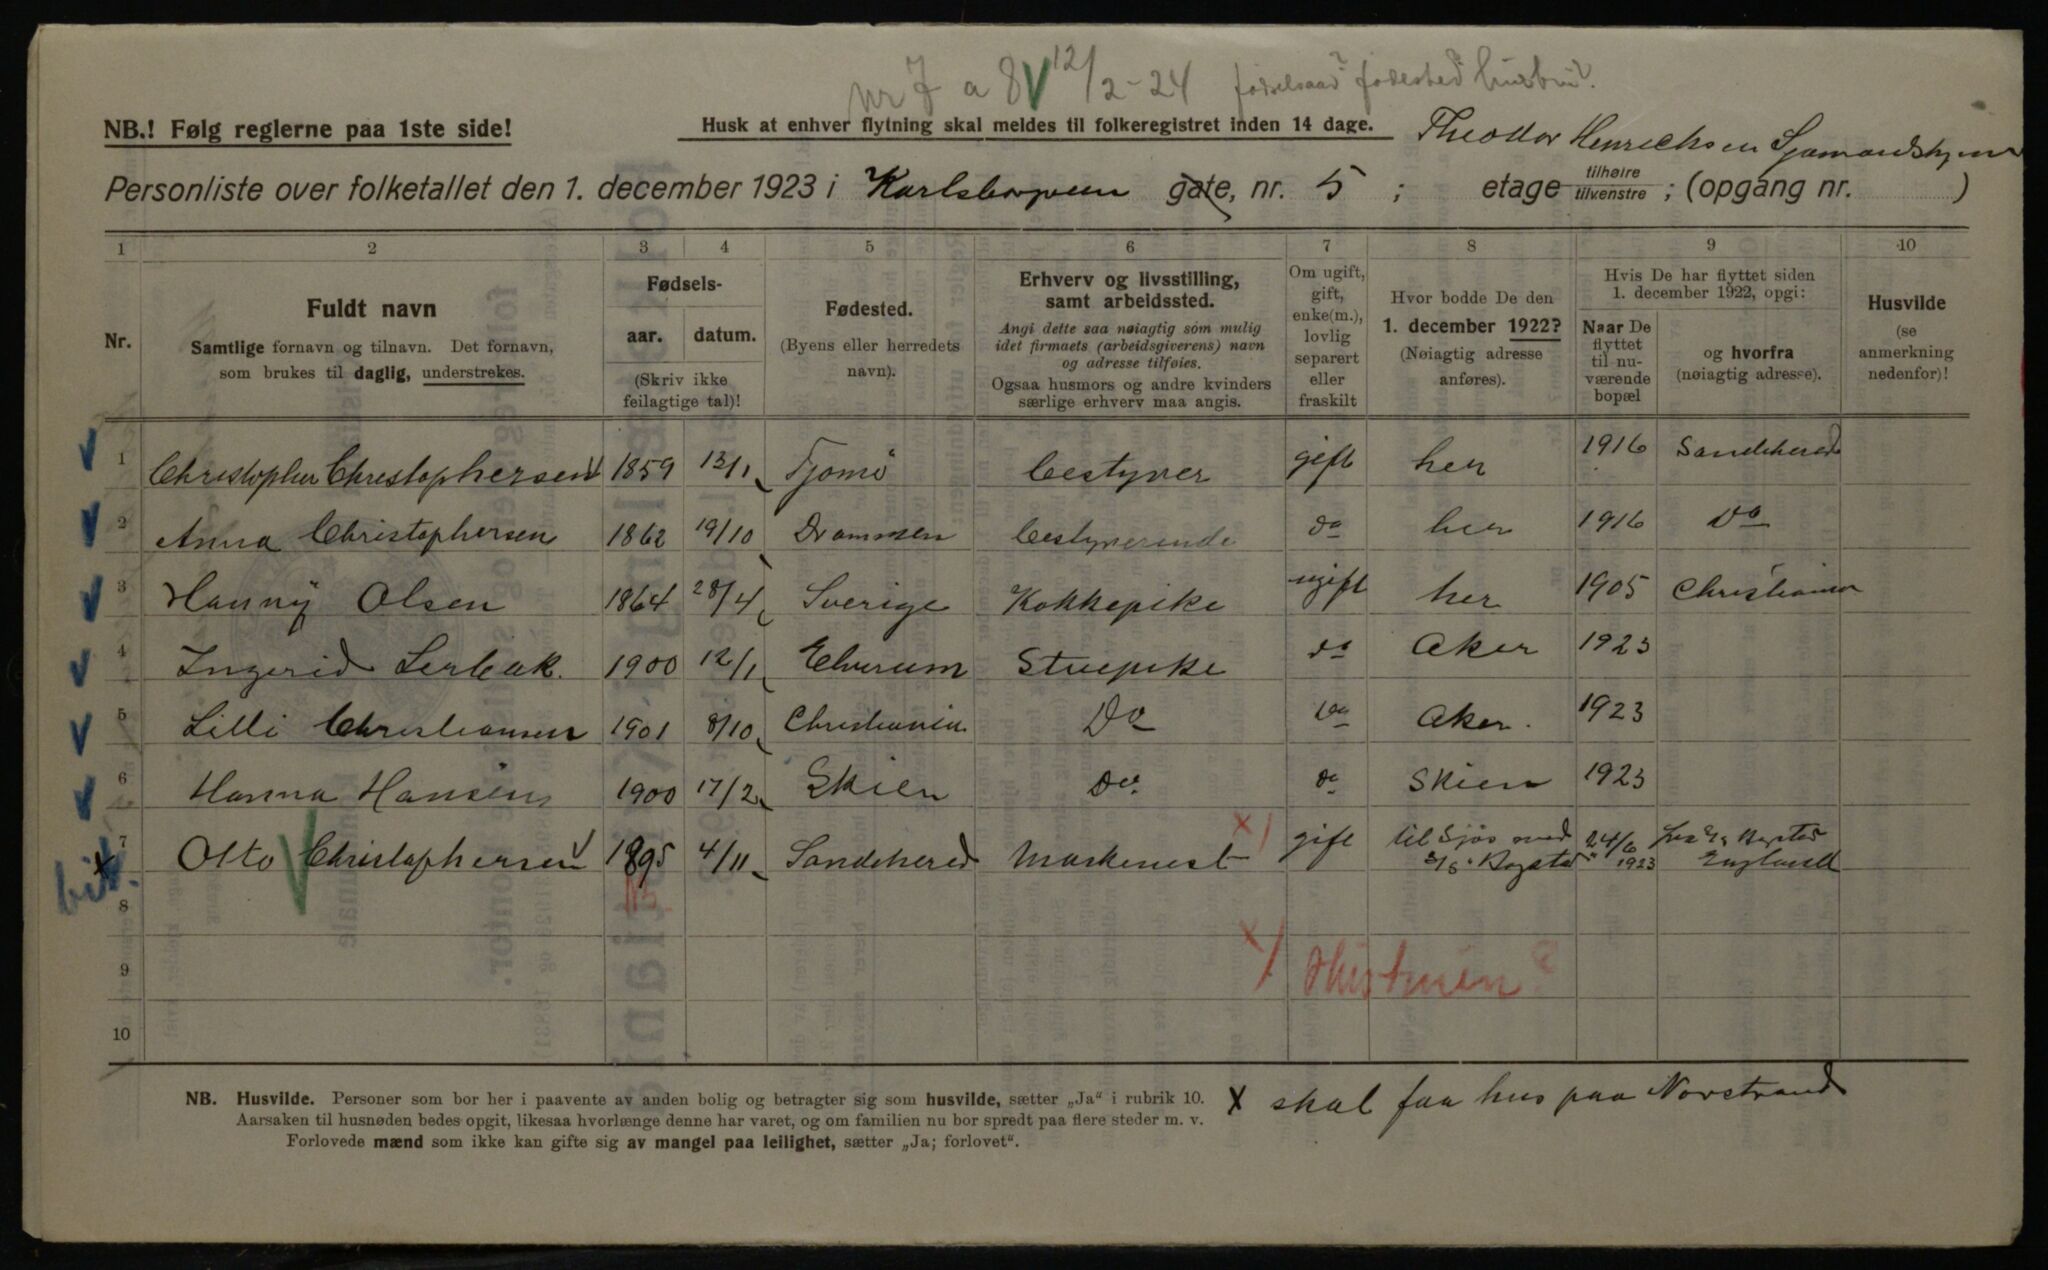 nr 7 a 8 12/2-24 fødselsaar? fødested husbond?
NB.! Følg reglerne paa 1ste side!
Husk at enhver flytning skal meldes til folkeregistret inden 14 dage.
Theodor Henrichsen Sjømandshjem
Personliste over folketallet den 1. december 1923 i Karlsborgveien gate, nr. 5 ; etage tilhøire tilvenstre ; (opgang nr. )
1 2 3 4 5 6 7 8 9 10
Nr.
Fuldt navn
Samtlige fornavn og tilnavn. Det fornavn,
som brukes til daglig, understrekes.
Fødsels-
aar. datum.
(Skriv ikke
feilagtige tal)!
Fødested.
(Byens eller herredets
navn).
Erhverv og livsstilling,
samt arbeidssted.
Angi dette saa nøiagtig som mulig
idet firmaets (arbeidsgiverens) navn
og adresse tilføies.
Ogsaa husmors og andre kvinders
særlige erhverv maa angis.
Om ugift,
gift,
enke(m.),
lovlig
separert
eller
fraskilt
Hvor bodde De den
1. december 1922?
(Nøiagtig adresse
anføres).
Hvis De har flyttet siden
1. december 1922, opgi:
Naar De
flyttet
til nu-
værende
bopæl
og hvorfra
(nøiagtig adresse).
Husvilde
(se
anmerkning
nedenfor)!
1 Christopher Christophersen 1859 13/1 Tjømø bestyrer gift her 1916 Sandeherred
2 Anna Christophersen 1862 19/10 Drammen bestyrerinde do her 1916 Do
3 Hanny Olsen 1864 28/4 Sverige Kokkepike ugift her 1905 Christiania
4 Ingerid Lerbak. 1900 12/1 Elverum Stuepike do Aker 1923
5 Lilli Christiansen 1901 8/10 Christiania Do do Aker. 1923
6 Hanna Hansen 1900 17/2 Skien Do. do Skien 1923
7 Otto Christophersen 1895 4/11 Sandeherred Maskenest x) gift til Sjøs med 24/6
S/S "Bogstad" 1923 England
8
x) Hustruen?
9
10
NB. Husvilde. Personer som bor her i paavente av anden bolig og betragter sig som husvilde, sætter „Ja" i rubrik 10.
Aarsaken til husnøden bedes opgit, likesaa hvorlænge denne har varet, og om familien nu bor spredt paa flere steder m. v.
Forlovede mænd som ikke kan gifte sig av mangel paa leilighet, sætter „Ja; forlovet".
X skal faa hus paa Norstrand